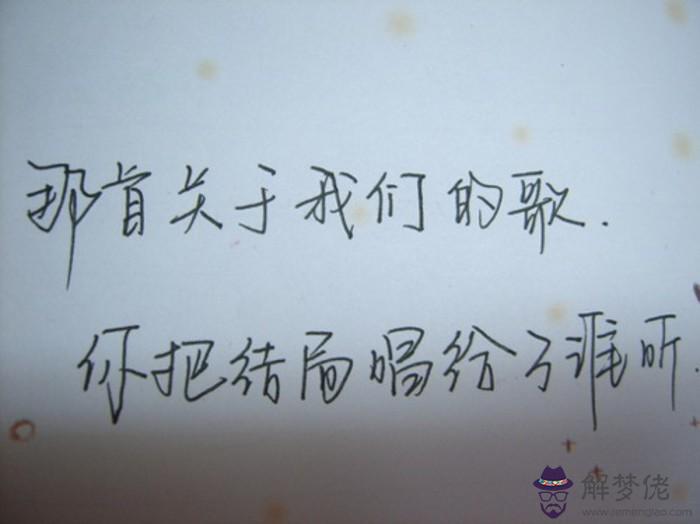 那首关于我们的歌.
你把结局唱给了谁听.
解梦佬
www.jiemenglao.com